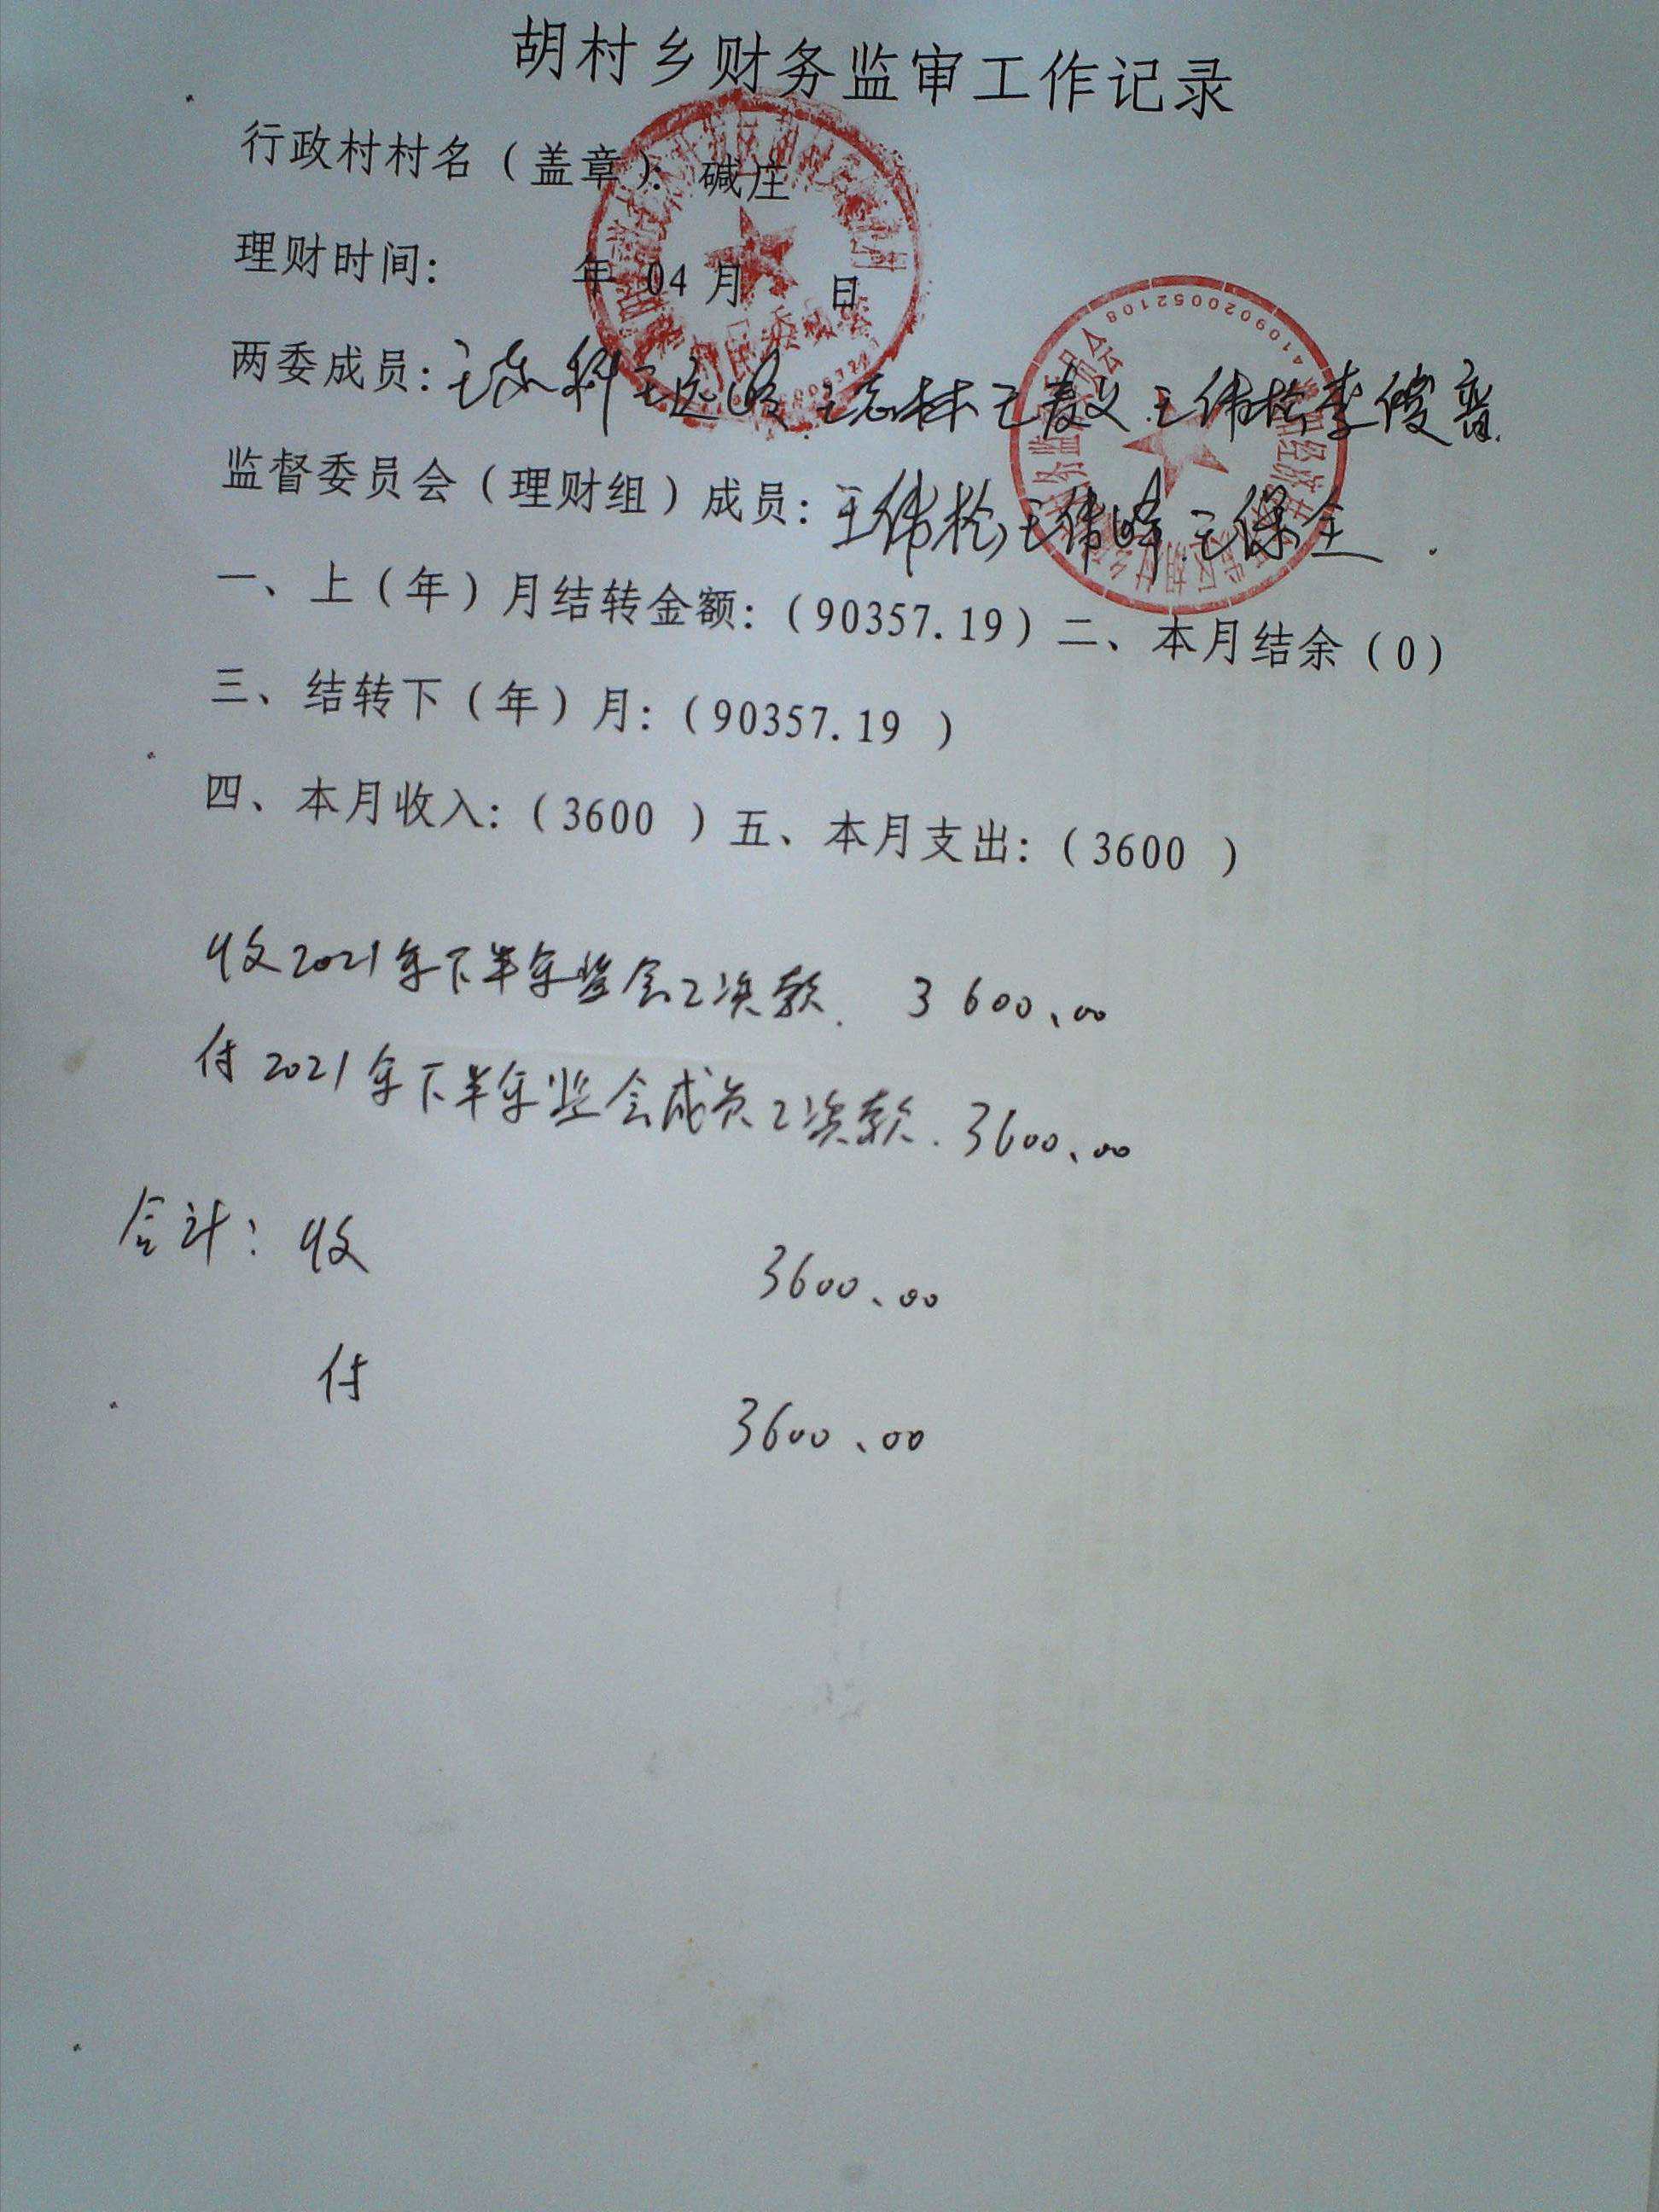 胡村乡财务监审工作记录
行政村村名（盖章）：碱庄
理财时间： 年 04 月 日
两委成员：王志林 王伟栓 李俊
监督委员会（理财组）成员：王伟栓 王伟峰 王保全
一、上（年）月结转金额：（90357.19）二、本月结余（0）
三、结转下（年）月：（90357.19 ）
四、本月收入：（3600 ）五、本月支出：（3600 ）
收2021年下半年监会工资款. 3600.00
付2021年下半年监会成员工资款. 3600.00
合计：收 3600.00
付 3600.00
4109020052108